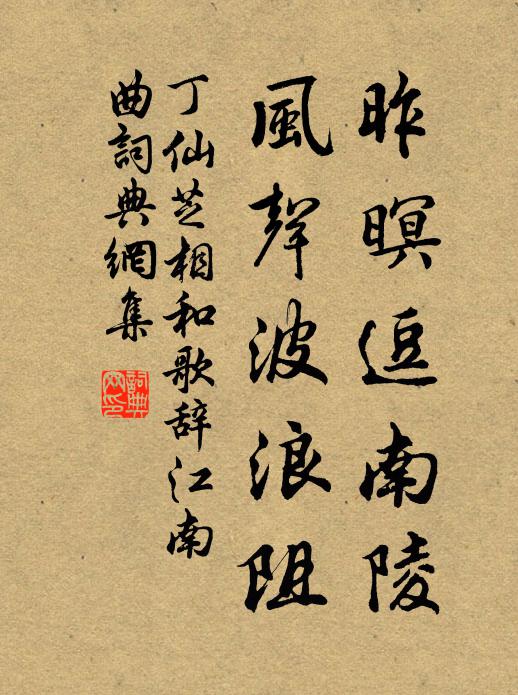 昨暝逗南陵
風聲波浪阻
丁仙芝相和歌辞江南
曲詞典網集
詞典網印